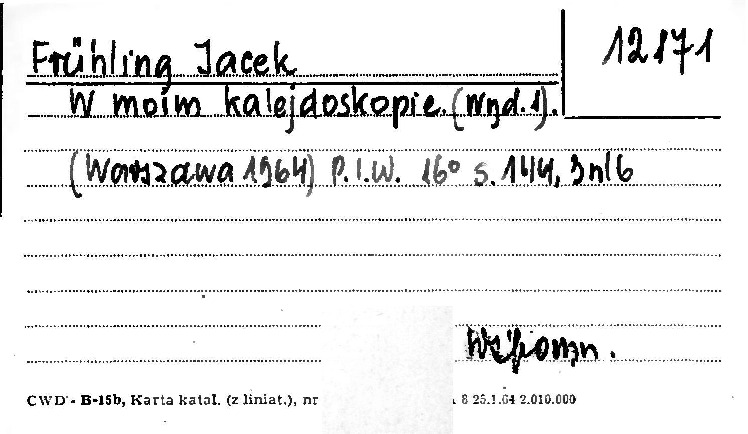 Frühling Jacek
12171
W moim kalejdoskopie. (Wyd. 1).
(Warszawa 1964) P.I.W. 16° s. 144, 3nlb
Wspomn.
CWD - B-15b, Karta katal. (z liniat.), nr
8 25.1.64 2.010.000